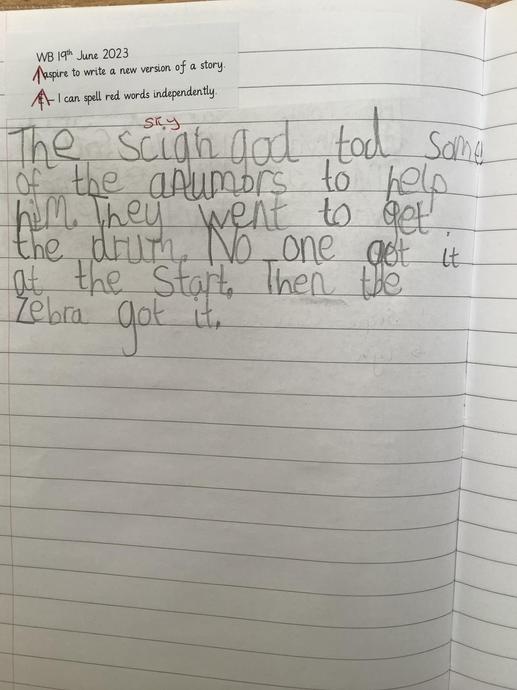 WB 19th June 2023
Aspire to write a new version of a story.
A- I can spell red words independently.
sky
The scigh god tod some
of the anumors to help
him. They went to get
the drum. No one got it
at the Start. Then the
Zebra got it.